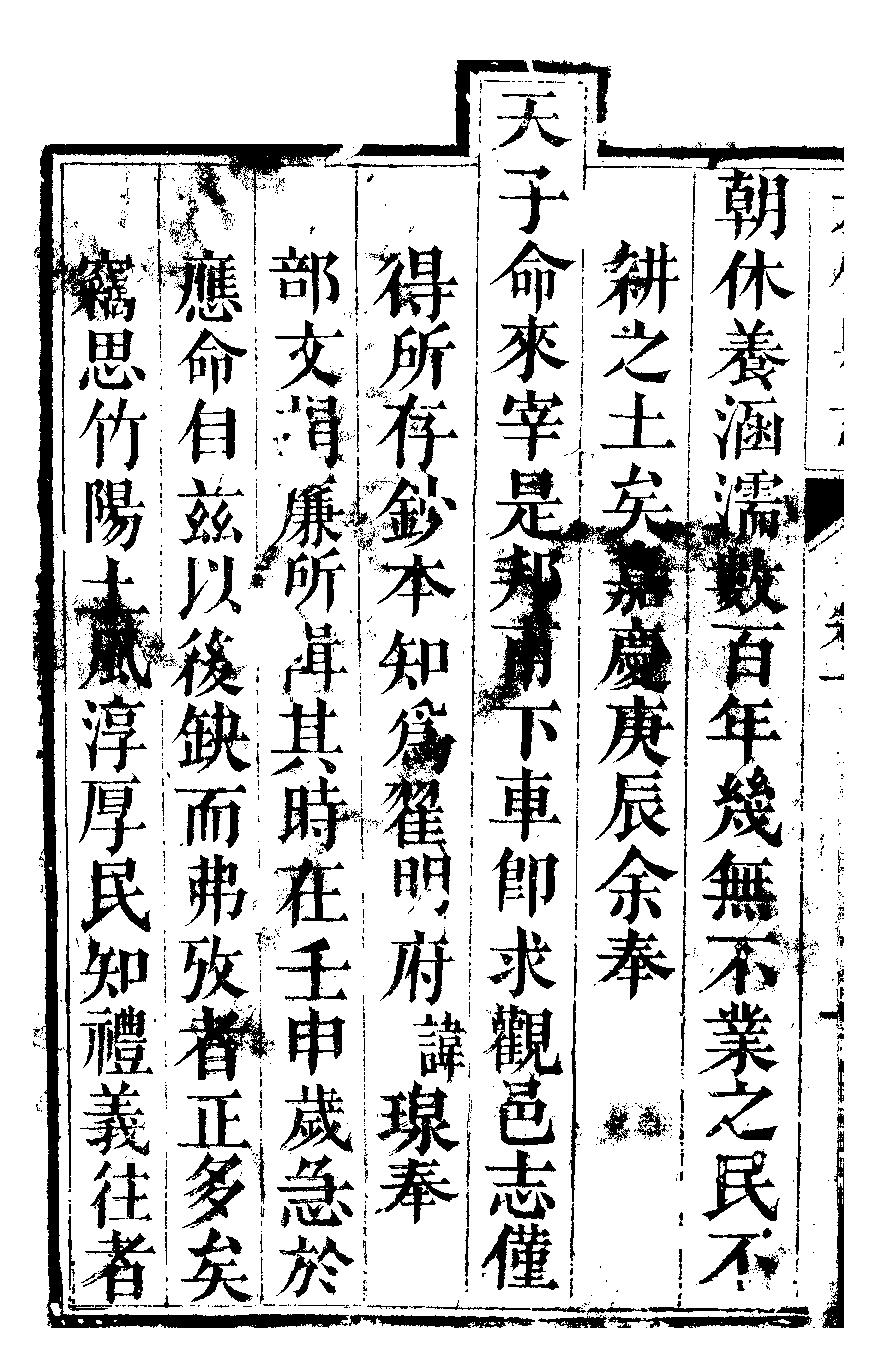 朝休養涵濡數百年幾無不業之民不
耕之土矣嘉慶庚辰余奉
天子命來宰是邦甫下車即求觀邑志僅
得所存鈔本知爲翟明府諱瑔奉
部文 廉所 其時在壬申歲急於
應命自茲以後缺而弗攷者正多矣
竊思竹陽土風淳厚民知禮義往者